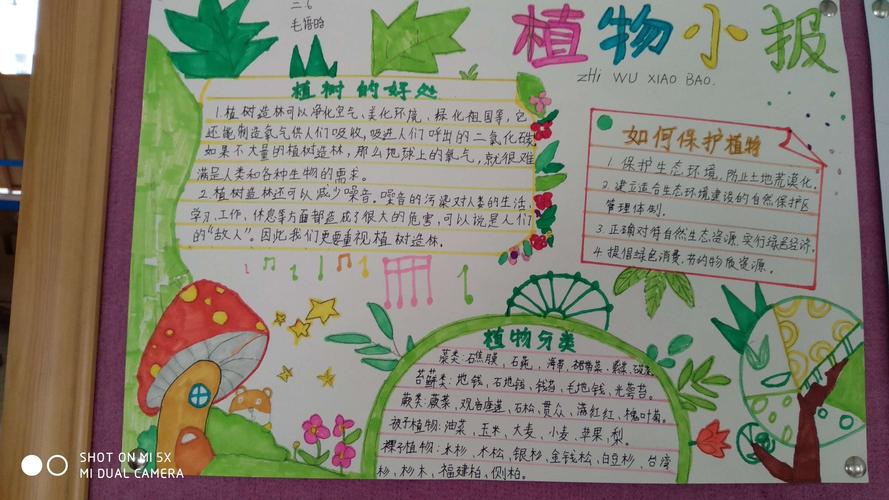 二.6
植物小报
zHi WU XIAO BAO.
植树的好处
1.植树造林可以净化空气、美化环境、绿化祖国等,它
还能制造氧气供人们吸收,吸进人们呼出的二氧化碳,
如果不大量的植树造林,那么地球上的氧气,就很难
满足人类和各种生物的需求。
2.植树造林还可以减少噪音。噪音的污染对人类的生活、
学习、工作、休息等方面都造成了很大的危害,可以说是人们
的“敌人”。因此我们更要重视植树造林。
如何保护植物
1.保护生态环境,防止土地荒漠化。
2.建立适合生态环境建设的自然保护区
管理体制.
3.正确对待自然生态资源,实行绿色经济。
4.提倡绿色消费,节约物质资源。
植物分类
藻类:石莼、海带、紫菜、
苔藓类:地钱、石地钱、钱苔、毛地钱、光萼苔。
蕨类:蕨菜、观音座莲、石松、贯众、满红红、槐叶萍。
被子植物:油菜、玉米、大麦、小麦、苹果、梨。
裸子植物:水杉、水松、银杉、金钱松、白豆杉、台湾
杉、杉木、福建柏、侧柏。
SHOT ON MI 5X
MI DUAL CAMERA